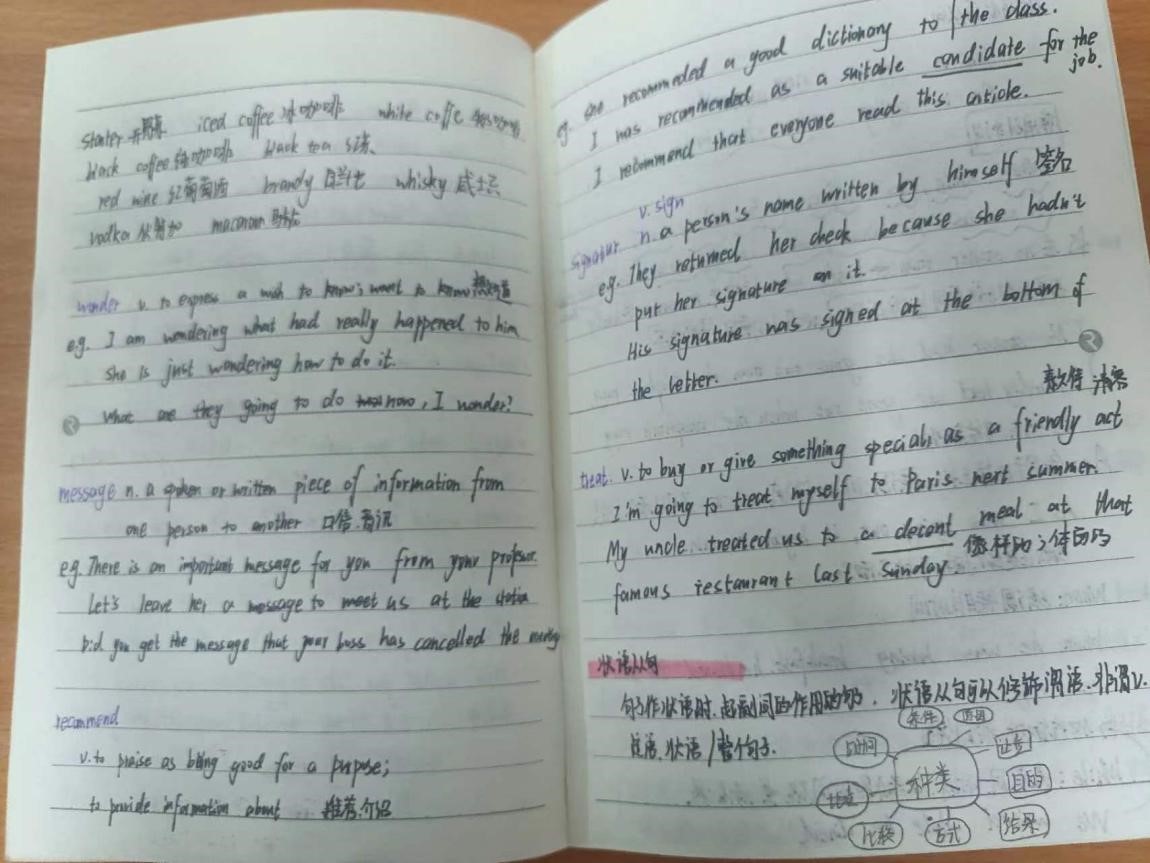 starter 开胃菜 iced coffee 冰咖啡 white coffe
black coffee 咖啡 black tea 红茶
red wine 红葡萄酒 brandy 白兰地 whisky 威士忌
vodka 伏特加 macaroon
wonder v. to express a wish to know; want to know 想知道
e.g. I am wondering what had really happened to him
she is just wondering how to do it.
what are they going to do now, I wonder?
message n. a spoken or written piece of information from
one person to another 口信.音讯
e.g. There is an important message for you from your profesor.
Let's leave her a message to meet us at the station
Did you get the message that your boss has cancelled the meeting
recommend
v. to praise as being good for a purpose;
to provide information about 推荐.介绍
eg. she recommended a good dictionary to the class.
I was recommended as a suitable candidate for the
job.
I recommend that everyone read this article.
v. sign
signatur n. a person's name written by himself 签名
eg. They returned her check because she hadn't
put her signature on it.
His signature was signed at the bottom of
the letter.
款待 请客
treat. v. to buy or give something special, as a friendly act
I'm going to treat myself to Paris next summer.
My uncle treated us to a decent meal at that
像样的；体面的
famous restaurant last Sunday.
状语从句
句子作状语时.起副词的作用的句. 状语从句可以修饰谓语.非谓v.
定语.状语/整个句子.
条件 原因
时间 让步
地点 种类 目的
比较 方式 结果